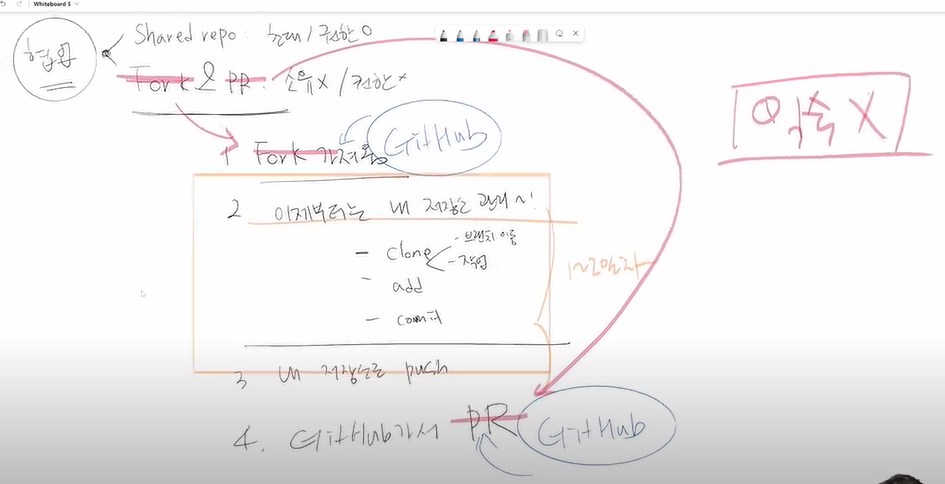 Whiteboard 5
협업
Shared repo : 초대 / 권한 O
Fork & PR : 소유 X / 권한 X
익숙 X
1 Fork 가져와
GitHub
2 이제부터는 내 저장소 관리~!
- clone
- 브랜치 이동
- 작업
- add
- commit
1~2일차
3 내 저장소로 push
4. GitHub가서 PR
GitHub